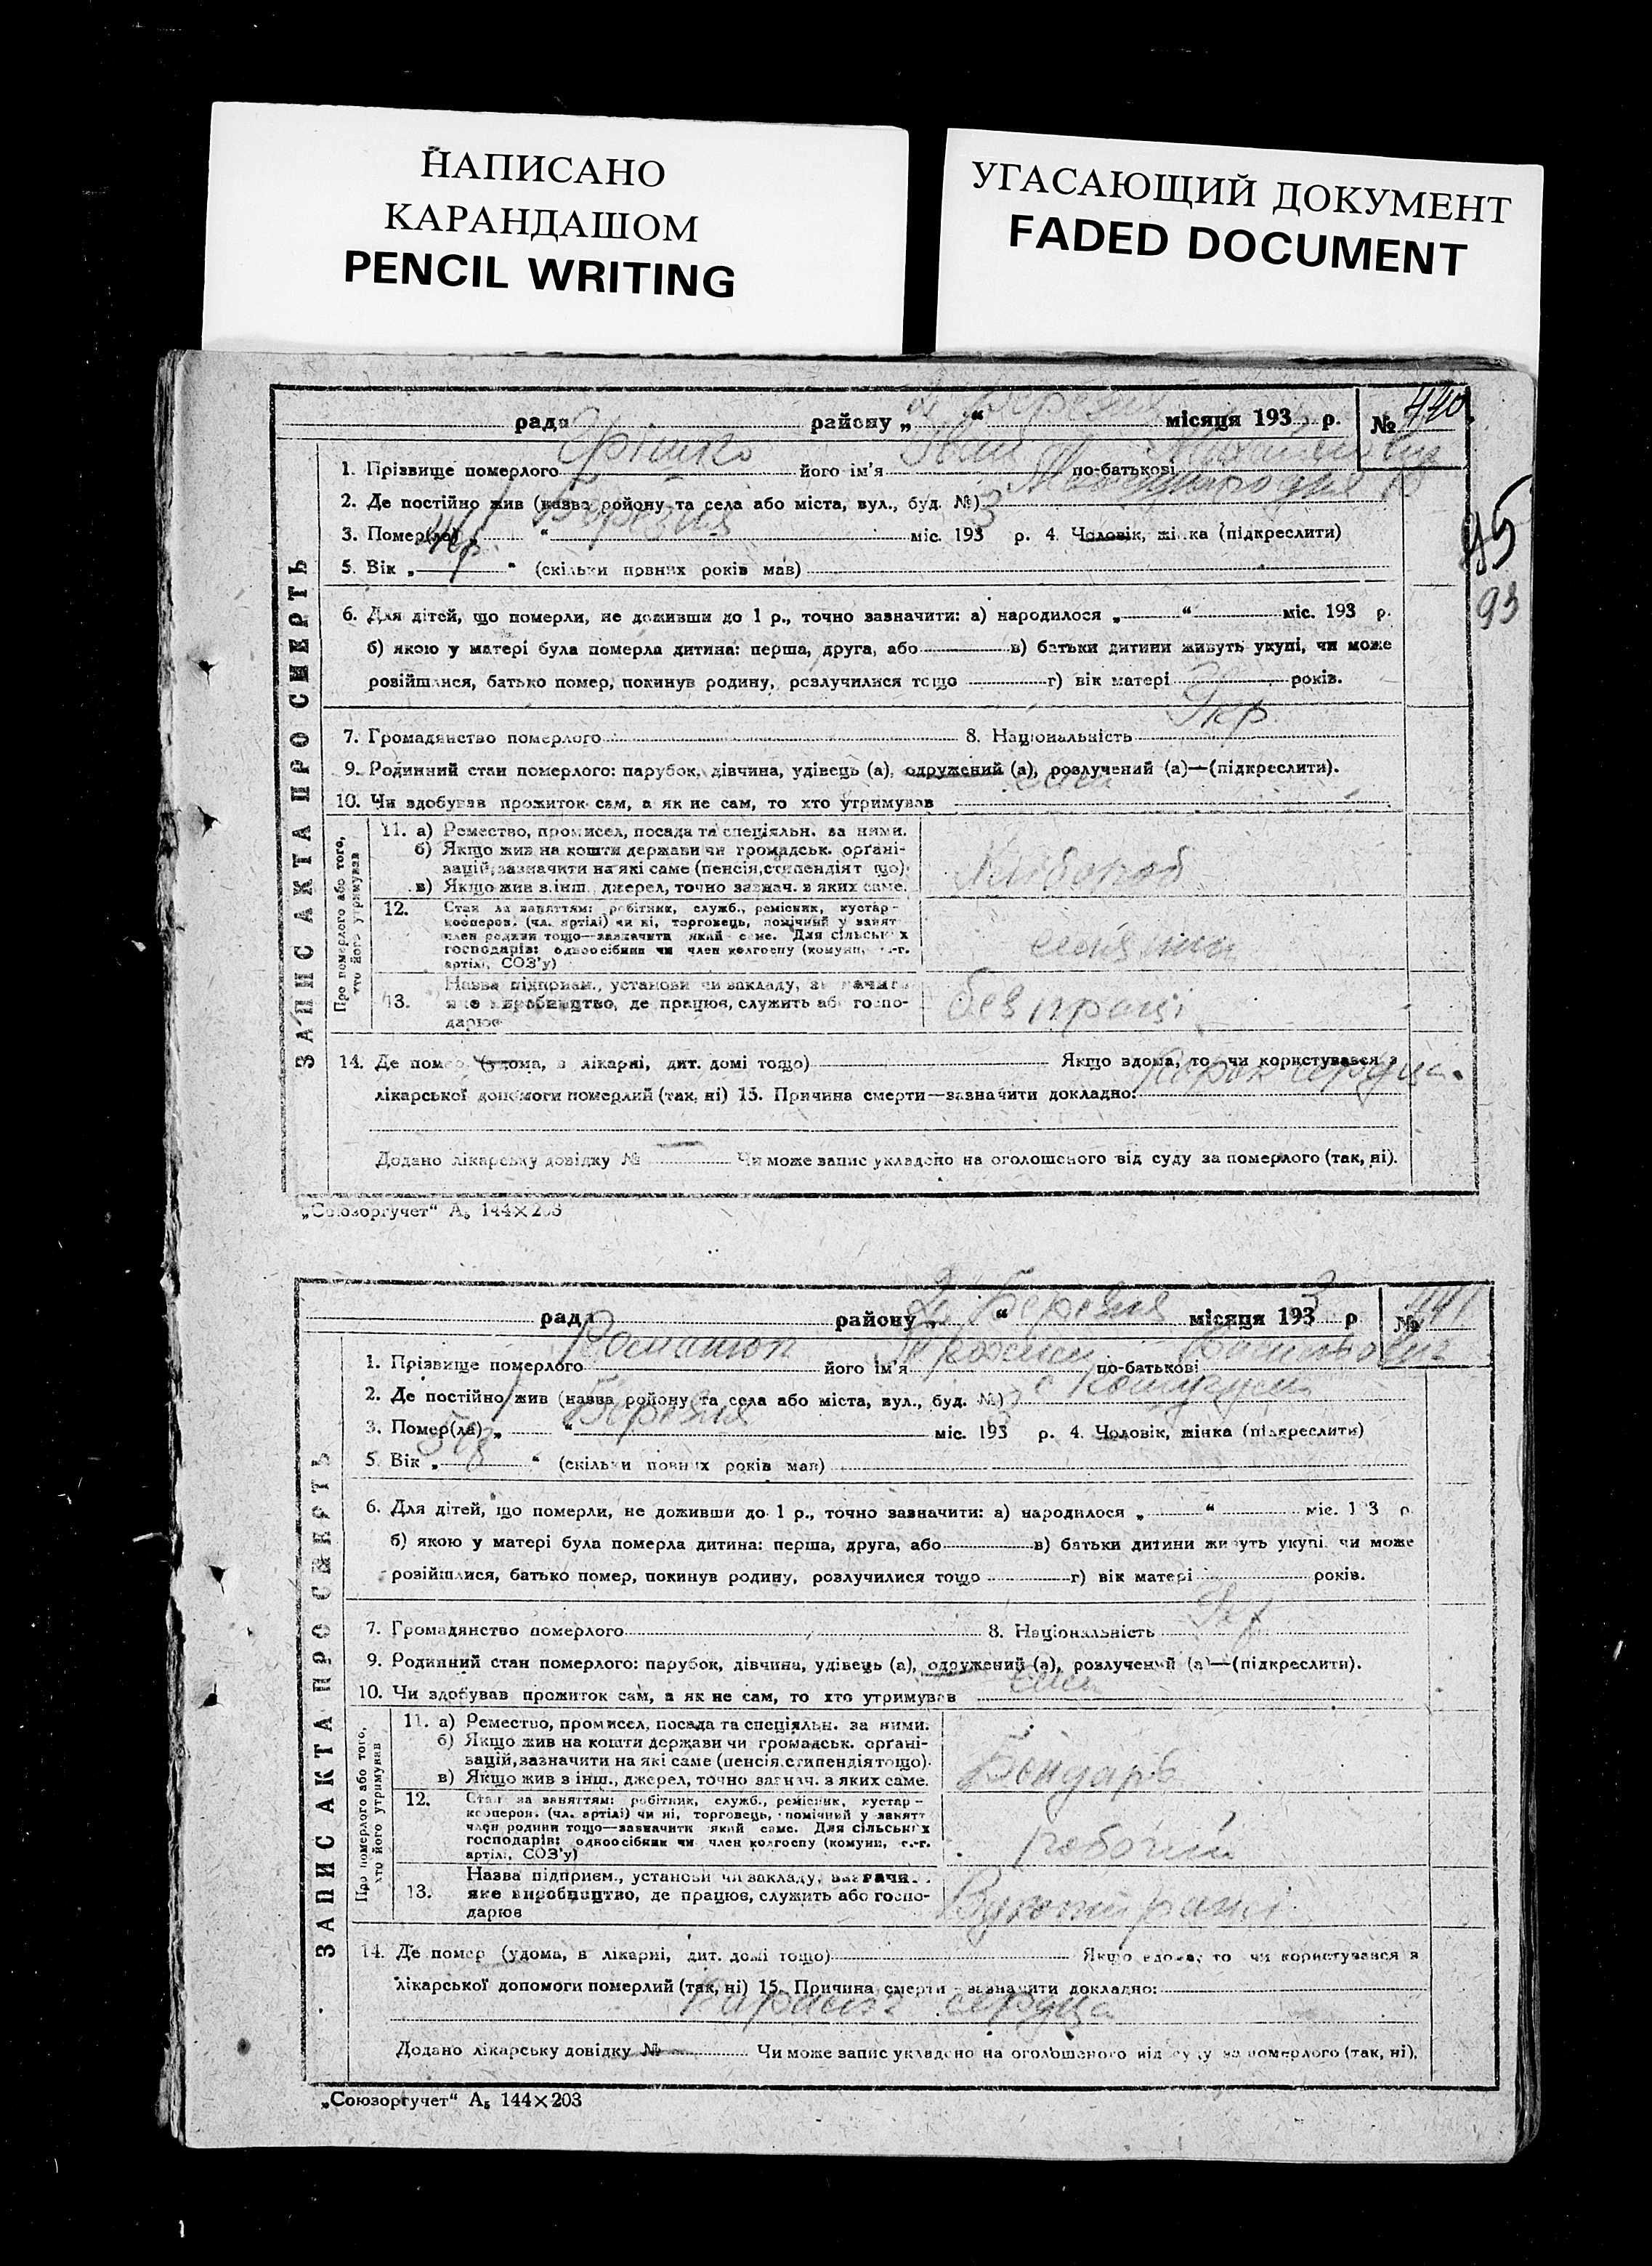 НАПИСАНО
КАРАНДАШОМ
PENCIL WRITING
УГАСАЮЩИЙ ДОКУМЕНТ
FADED DOCUMENT
ЗАПИС АКТА ПРО СМЕРТЬ
рада району „2 “ Березня місяця 193 р. № 440
1. Прізвище померлого Грішко його ім’я Іван по-батькові
2. Де постійно жив (назва ройону та села або міста, вул., буд. №)
3. Помер(ла) „1 “ Березня міс. 193 3 р. 4. Чоловік, жінка (підкреслити)
5. Вік „ “ (скільки повних років мав)
45
93
6. Для дітей, що померли, не доживши до 1 р., точно зазначити: а) народилося „ “ міс. 193 р.
б) якою у матері була померла дитина: перша, друга, або в) батьки дитини живуть укупі, чи може
розійшлися, батько помер, покинув родину, розлучилися тощо г) вік матері років.
7. Громадянство померлого 8. Національність Укр
9. Родинний стан померлого: парубок, дівчина, удівець (а), одружений (а), розлучений (а)—(підкреслити).
10. Чи здобував прожиток сам, а як не сам, то хто утримував сам
Про померлого або того, хто його утримував
11. а) Ремество, промисел, посада та спеціяльн. за ними.
б) Якщо жив на кошти держави чи громадськ. орґані-
зацій, зазначити на які саме (пенсія, стипендія т що).
в) Якщо жив з інш. джерел, точно зазнач. з яких саме.
Хлібороб
12. Стан за заняттям: робітник, служб., ремісник, кустар-
кооперов. (чл. артілі) чи ні, торговець, помічний у занят
член родини тощо—зазначити який саме. Для сільських
господарів: одноосібник чи член колгоспу (комуни, с.-г.
артілі, СОЗ’у)
13. Назва підприєм., установи чи закладу, зазначити
яке виробництво, де працює, служить або госпо-
дарює
без праці
14. Де помер (удома, в лікарні, дит. домі тощо) Якщо вдома, то чи користувався з
лікарської допомоги померлий (так, ні) 15. Причина смерти—зазначити докладно: серця
Додано лікарську довідку № Чи може запис укладено на оголошеного від суду за померлого (так, ні).
„Союзоргучет“ А₅ 144×203
ЗАПИС АКТА ПРО СМЕРТЬ
рада району „2 “ Березня місяця 193 3 р № 441
1. Прізвище померлого Романюк його ім’я по-батькові Васильович
2. Де постійно жив (назва ройону та села або міста, вул., буд. №)
3. Помер(ла) „1 “ Березня міс. 193 3 р. 4. Чоловік, жінка (підкреслити)
5. Вік „ “ (скільки повних років мав)
6. Для дітей, що померли, не доживши до 1 р., точно зазначити: а) народилося „ “ міс. 193 р.
б) якою у матері була померла дитина: перша, друга, або в) батьки дитини живуть укупі, чи може
розійшлися, батько помер, покинув родину, розлучилися тощо г) вік матері років.
7. Громадянство померлого 8. Національність Укр
9. Родинний стан померлого: парубок, дівчина, удівець (а), одружений (а), розлучений (а)—(підкреслити).
10. Чи здобував прожиток сам, а як не сам, то хто утримував сам
Про померлого або того, хто його утримував
11. а) Ремество, промисел, посада та спеціяльн. за ними.
б) Якщо жив на кошти держави чи громадськ. орґані-
зацій, зазначити на які саме (пенсія, стипендія тощо).
в) Якщо жив з інш., джерел, точно зазнач. з яких саме.
Бондарь
12. Стан за заняттям: робітник, служб., ремісник, кустар-
кооперов. (чл. артілі) чи ні, торговець, помічний у занятт
член родини тощо—зазначити який саме. Для сільських
господарів: одноосібник чи член колгоспу (комуни, с.-г.
артілі, СОЗ’у)
робочий
13. Назва підприєм., установи чи закладу, зазначи
яке виробництво, де працює, служить або госпо-
дарює
14. Де помер (удома, в лікарні, дит. домі тощо) Якщо вдома, то чи користувався з
лікарської допомоги померлий (так, ні) 15. Причина смерти—зазначити докладно:
серця
Додано лікарську довідку № Чи може запис укладено на оголошеного від суду за померлого (так, ні).
„Союзоргучет“ А₅ 144×203